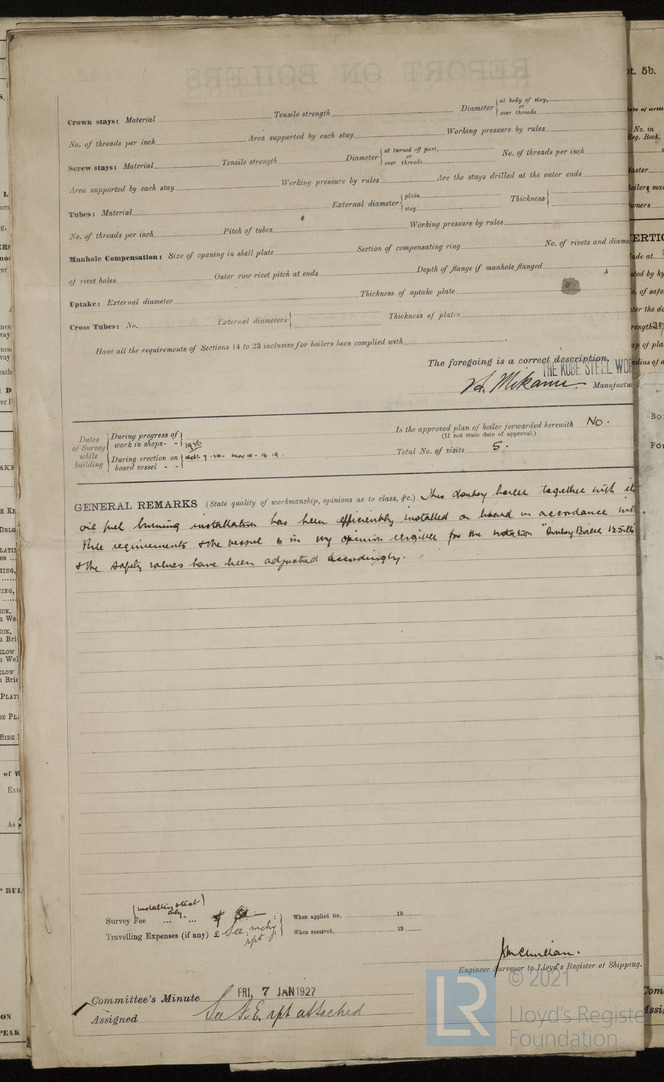 REPORT ON BOILERS
Crown stays: Material Tensile strength Diameter at body of stay, or over threads
No. of threads per inch Area supported by each stay Working pressure by rules
Screw stays: Material Tensile strength Diameter at turned off part, or over threads No. of threads per inch
Area supported by each stay Working pressure by rules Are the stays drilled at the outer ends
Tubes: Material External diameter plain stay Thickness
No. of threads per inch Pitch of tubes Working pressure by rules
Manhole Compensation: Size of opening in shell plate Section of compensating ring No. of rivets and diame
of rivet holes Outer row rivet pitch at ends Depth of flange if manhole flanged
Uptake: External diameter Thickness of uptake plate
Cross Tubes: No. External diameters Thickness of plates
Have all the requirements of Sections 14 to 23 inclusive for boilers been complied with
The foregoing is a correct description,
THE KOBE STEEL WO
Manufactu
Dates of Survey while building
During progress of work in shops - - 1926
During erection on board vessel - -
Is the approved plan of boiler forwarded herewith No.
(If not state date of approval.)
Total No. of visits 5.
GENERAL REMARKS (State quality of workmanship, opinions as to class, &c.) This donkey boiler together with
oil fuel burning installation has been efficiently installed on board in accordance
Rule requirements & the vessel is in my opinion eligible for the notation "Donkey Boiler
& the safety valves have been adjusted accordingly.
Survey Fee ... ... £
Travelling Expenses (if any) £ See mchy rpt
When applied for, 19
When received, 19
Engineer Surveyor to Lloyd's Register of Shipping.
Committee's Minute FRI, 7 JAN 1927
Assigned See F.E. rpt attached
© 2021
LR
Lloyd's Registe
Foundation